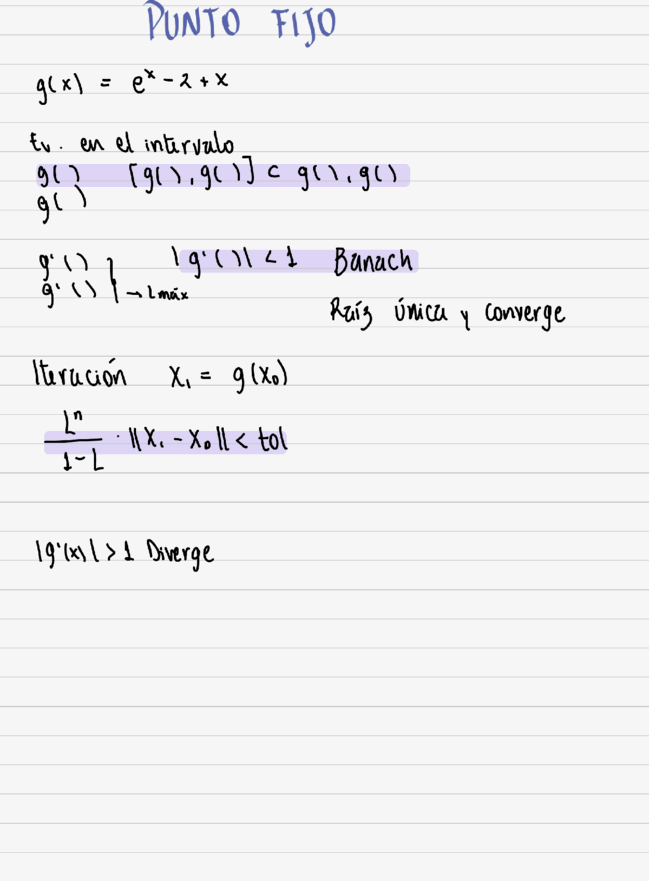 PUNTO FIJO
g(x) = e^x - 2 + x
Ev. en el intervalo
g( ) [g( ), g( )] ⊂ g( ), g( )
g( )
g'( ) |g'( )| < 1 Banach
g'( ) → Lmáx
Raíz única y converge
Iteración X₁ = g(X₀)
L^n / (1-L) · ||X₁ - X₀|| < tol
|g'(x)| > 1 Diverge